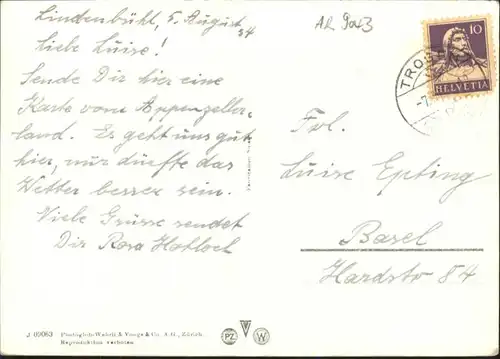 Lindenbühl, 5. August 34
AR 9043
Liebe Luise!
Sende Dir hier eine
Karte vom Appenzeller-
land. Es geht uns gut
hier, nur dürfte das
Wetter besser sein.
Viele Grüsse sendet
Dir Rosa
10
HELVETIA
TROGEN
-7.
Frl.
Luise Epting
Basel
Hardstr 84
J 09083 Photoglob-Wehrli & Vouga & Co. A.G., Zürich.
Reproduktion verboten
PZ V W